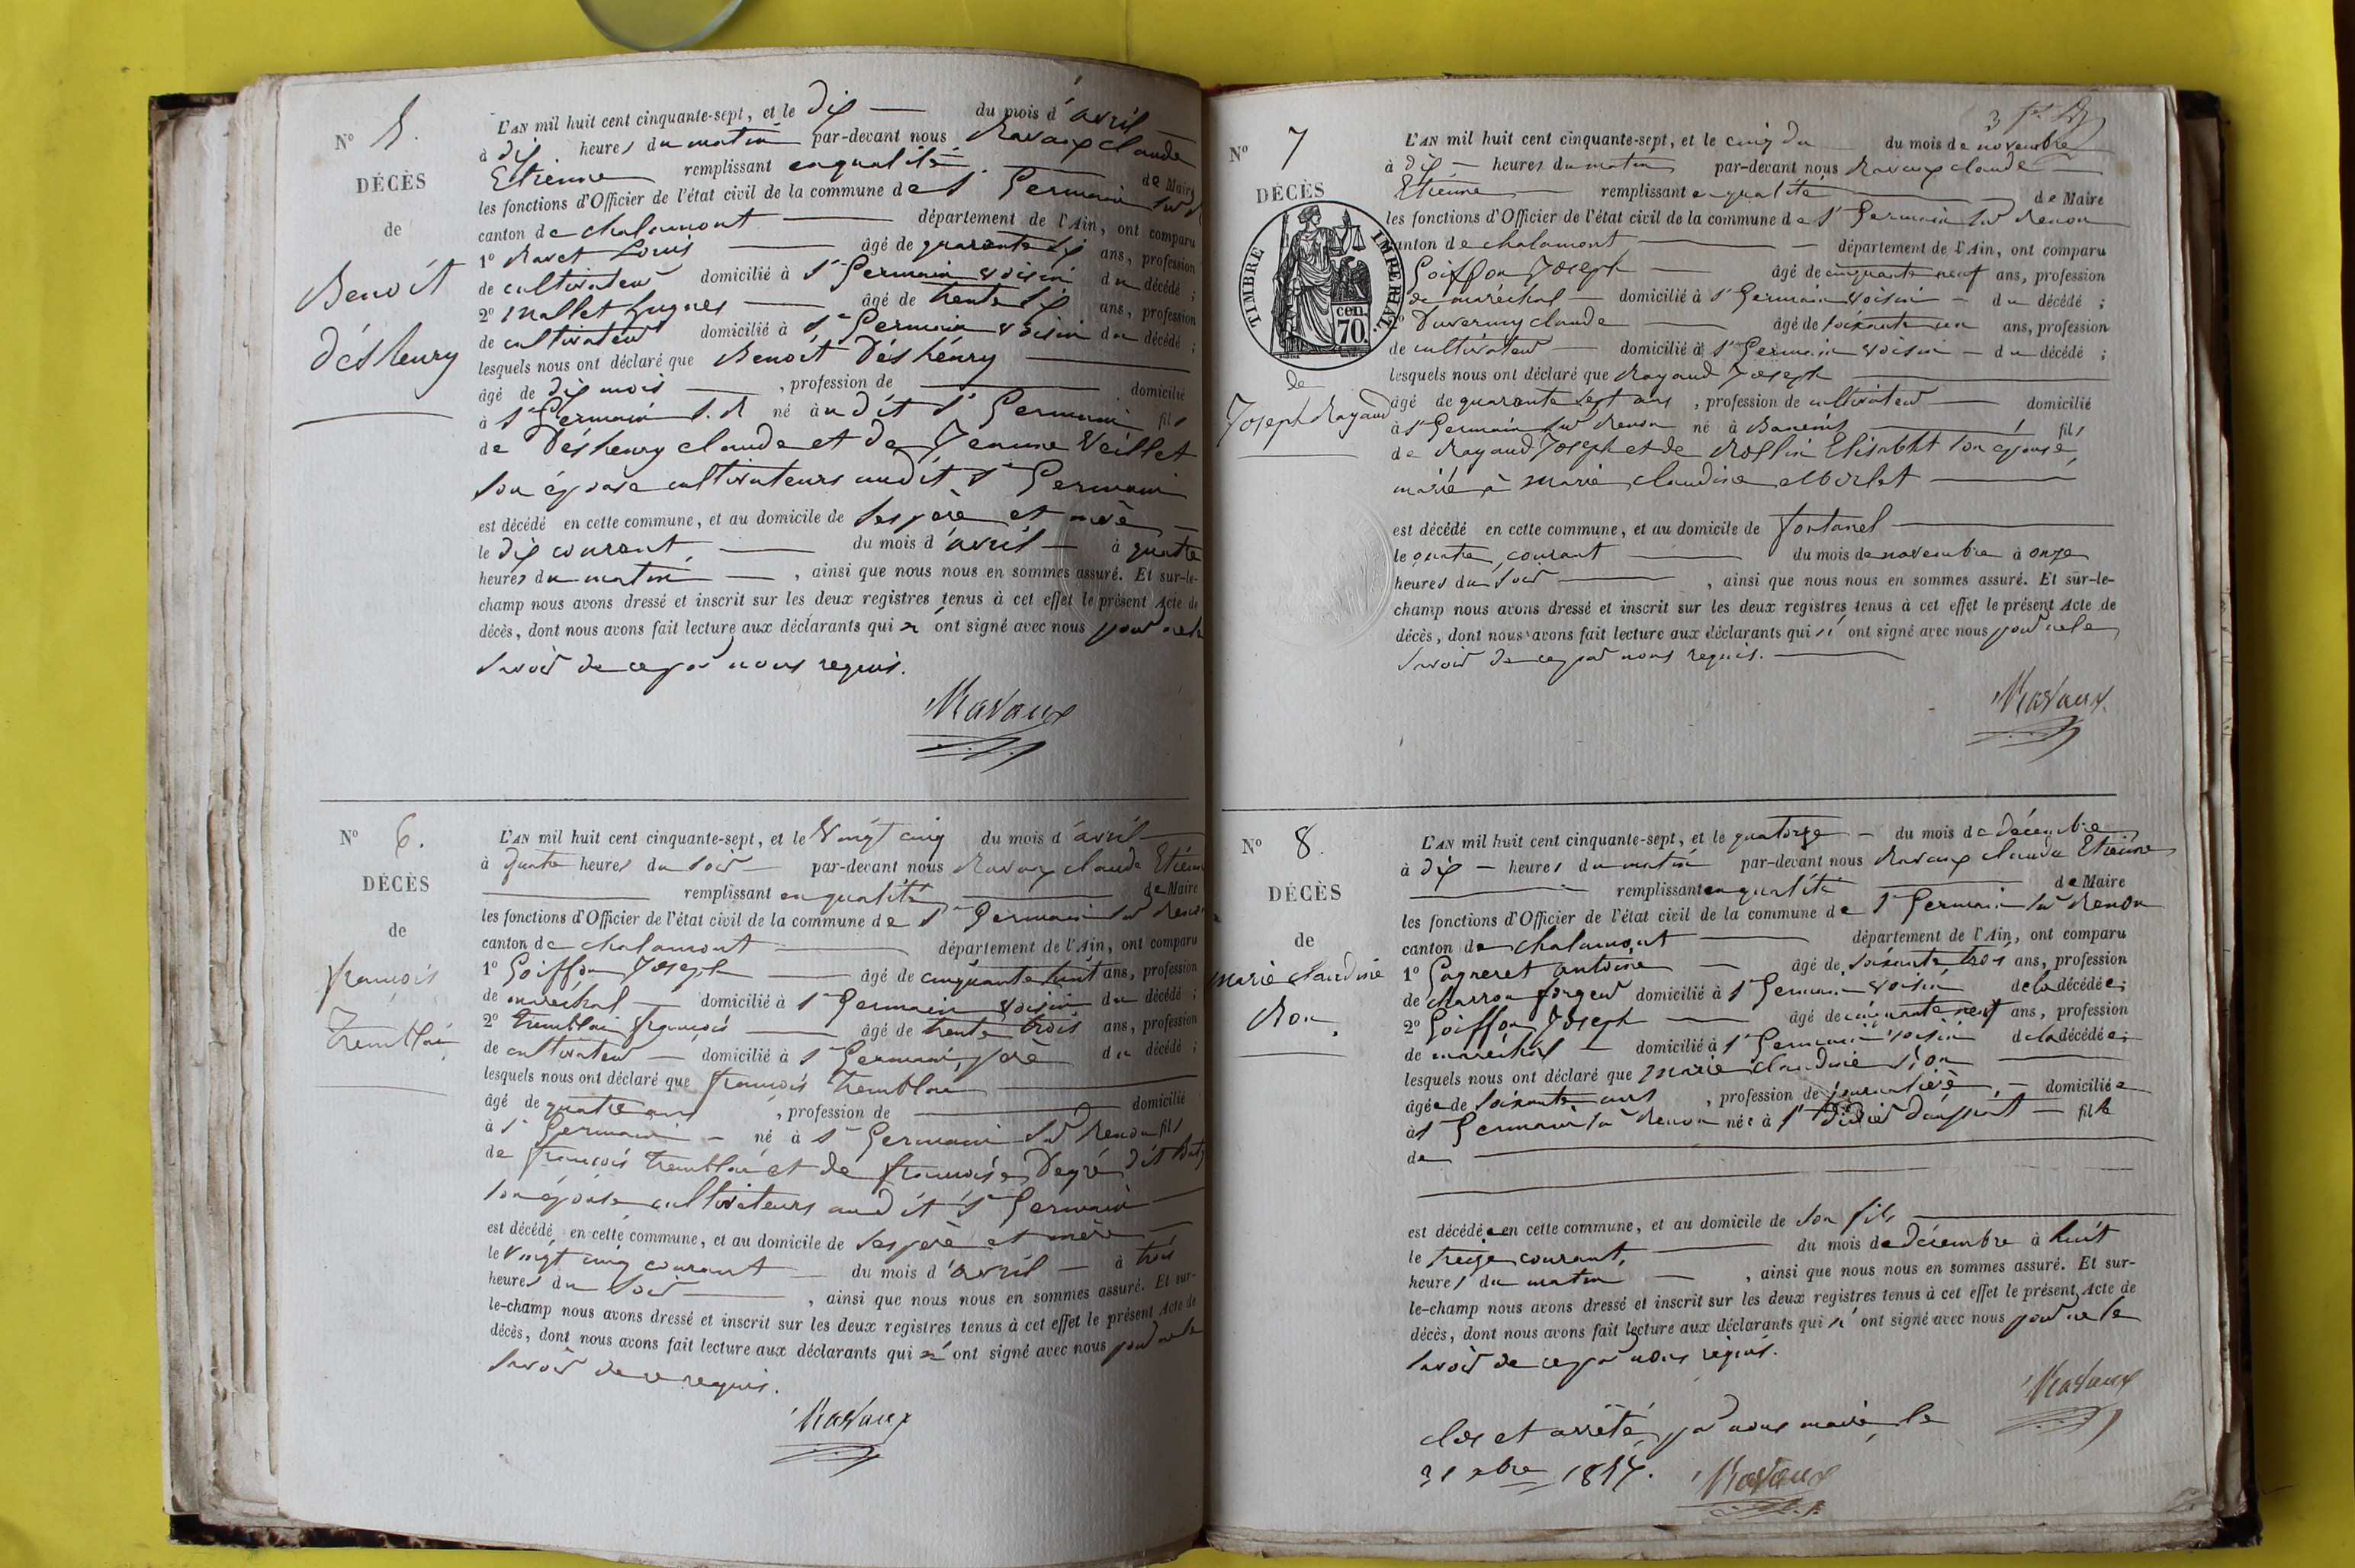 N° 5.
DÉCÈS
de
Benoît
déshenry
L'AN mil huit cent cinquante-sept, et le dix du mois d'avril
à dix heures du matin par-devant nous Ravaux claude
Etienne remplissant en qualité de Maire
les fonctions d'Officier de l'état civil de la commune de St Germain sur
canton de chalamont département de l'Ain, ont comparu
1° Louis âgé de quarante six ans, profession
de cultivateur domicilié à St Germain voisin du décédé ;
2° Mallet hugues âgé de trente six ans, profession
de cultivateur domicilié à St Germain voisin du décédé ;
lesquels nous ont déclaré que Benoît Déshenry
âgé de dix mois , profession de domicilié
à St Germain S. R né audit St Germain fils
de Déshenry claude et de Jeanne Veillet
son épouse cultivateurs audit St Germain
est décédé en cette commune, et au domicile de ses père et mère
le dix courant, du mois d'avril à quatre
heures du matin , ainsi que nous nous en sommes assuré. Et sur-le-
champ nous avons dressé et inscrit sur les deux registres tenus à cet effet le présent Acte de
décès, dont nous avons fait lecture aux déclarants qui n'ont signé avec nous pour ne le
savoir de ce par nous requis.
Ravaux
N° 6.
DÉCÈS
de
françois
Tremblai
L'AN mil huit cent cinquante-sept, et le vingt cinq du mois d'avril
à quatre heures du soir par-devant nous Ravaux claude Etienne
remplissant en qualité de Maire
les fonctions d'Officier de l'état civil de la commune de St Germain sur Renon
canton de chalamont département de l'Ain, ont comparu
1° Goiffon Joseph âgé de cinquante huit ans, profession
de maréchal domicilié à St Germain voisin du décédé ;
2° tremblai françois âgé de trente trois ans, profession
de cultivateur domicilié à St Germain, père du décédé ;
lesquels nous ont déclaré que françois Tremblai
âgé de quatre ans , profession de domicilié
à St Germain né à St Germain sur Renon fils
de françois tremblai et de françoise Degré dit
son épouse cultivateurs audit St Germain
est décédé en cette commune, et au domicile de ses père et mère
le vingt cinq courant du mois d'avril à trois
heures du soir , ainsi que nous nous en sommes assuré. Et sur-
le-champ nous avons dressé et inscrit sur les deux registres tenus à cet effet le présent Acte de
décès, dont nous avons fait lecture aux déclarants qui n'ont signé avec nous pour ne le
savoir de ce requis.
Ravaux
N° 7
DÉCÈS
TIMBRE IMPERIAL
cen. 70.
de
Joseph Rayaud
L'AN mil huit cent cinquante-sept, et le cinq du du mois de novembre
à dix heures du matin par-devant nous Ravaux claude
Etienne remplissant en qualité de Maire
les fonctions d'Officier de l'état civil de la commune de St Germain sur Renon
canton de chalamont département de l'Ain, ont comparu
Goiffon Joseph âgé de cinquante neuf ans, profession
de maréchal domicilié à St Germain voisin du décédé ;
2° Duvernay claude âgé de soixante un ans, profession
de cultivateur domicilié à St Germain voisin du décédé ;
lesquels nous ont déclaré que Rayaud Joseph
âgé de quarante sept ans , profession de cultivateur domicilié
à St Germain sur Renon né à Baneins fils
de Rayaud Joseph et de Rollin Elisabht son épouse,
marié à Marie claudine Morlet
est décédé en cette commune, et au domicile de fontanel
le quatre courant du mois de novembre à onze
heures du soir , ainsi que nous nous en sommes assuré. Et sur-le-
champ nous avons dressé et inscrit sur les deux registres tenus à cet effet le présent Acte de
décès, dont nous avons fait lecture aux déclarants qui n'ont signé avec nous pour ne le
savoir de ce par nous requis.
Ravaux
N° 8.
DÉCÈS
de
marie claudine
Ron
L'AN mil huit cent cinquante-sept, et le quatorze du mois de décembre
à dix heures du matin par-devant nous Ravaux claude Etienne
remplissant en qualité de Maire
les fonctions d'Officier de l'état civil de la commune de St Germain sur Renon
canton de chalamont département de l'Ain, ont comparu
1° antoine âgé de soixante trois ans, profession
de charron forgeur domicilié à St Germain voisin de la décédée;
2° Goiffon Joseph âgé de cinquante neuf ans, profession
de maréchal domicilié à St Germain voisin de la décédée;
lesquels nous ont déclaré que Marie claudine
âgée de soixante ans , profession de journalière, domiciliée
à St Germain sur Renon née à St Didier fille
de
est décédée en cette commune, et au domicile de son fils
le treize courant, du mois de décembre à huit
heures du matin , ainsi que nous nous en sommes assuré. Et sur-
le-champ nous avons dressé et inscrit sur les deux registres tenus à cet effet le présent Acte de
décès, dont nous avons fait lecture aux déclarants qui n'ont signé avec nous pour ne le
savoir de ce par nous requis.
Ravaux
clos et arrêté par nous maire, le
31 xbre 1857. Ravaux